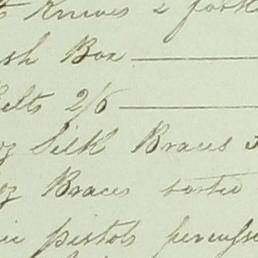 Knives 2 forks
sh Box
elts 2/6
oz Silk Braces
oz Braces sorted
pistols percuss